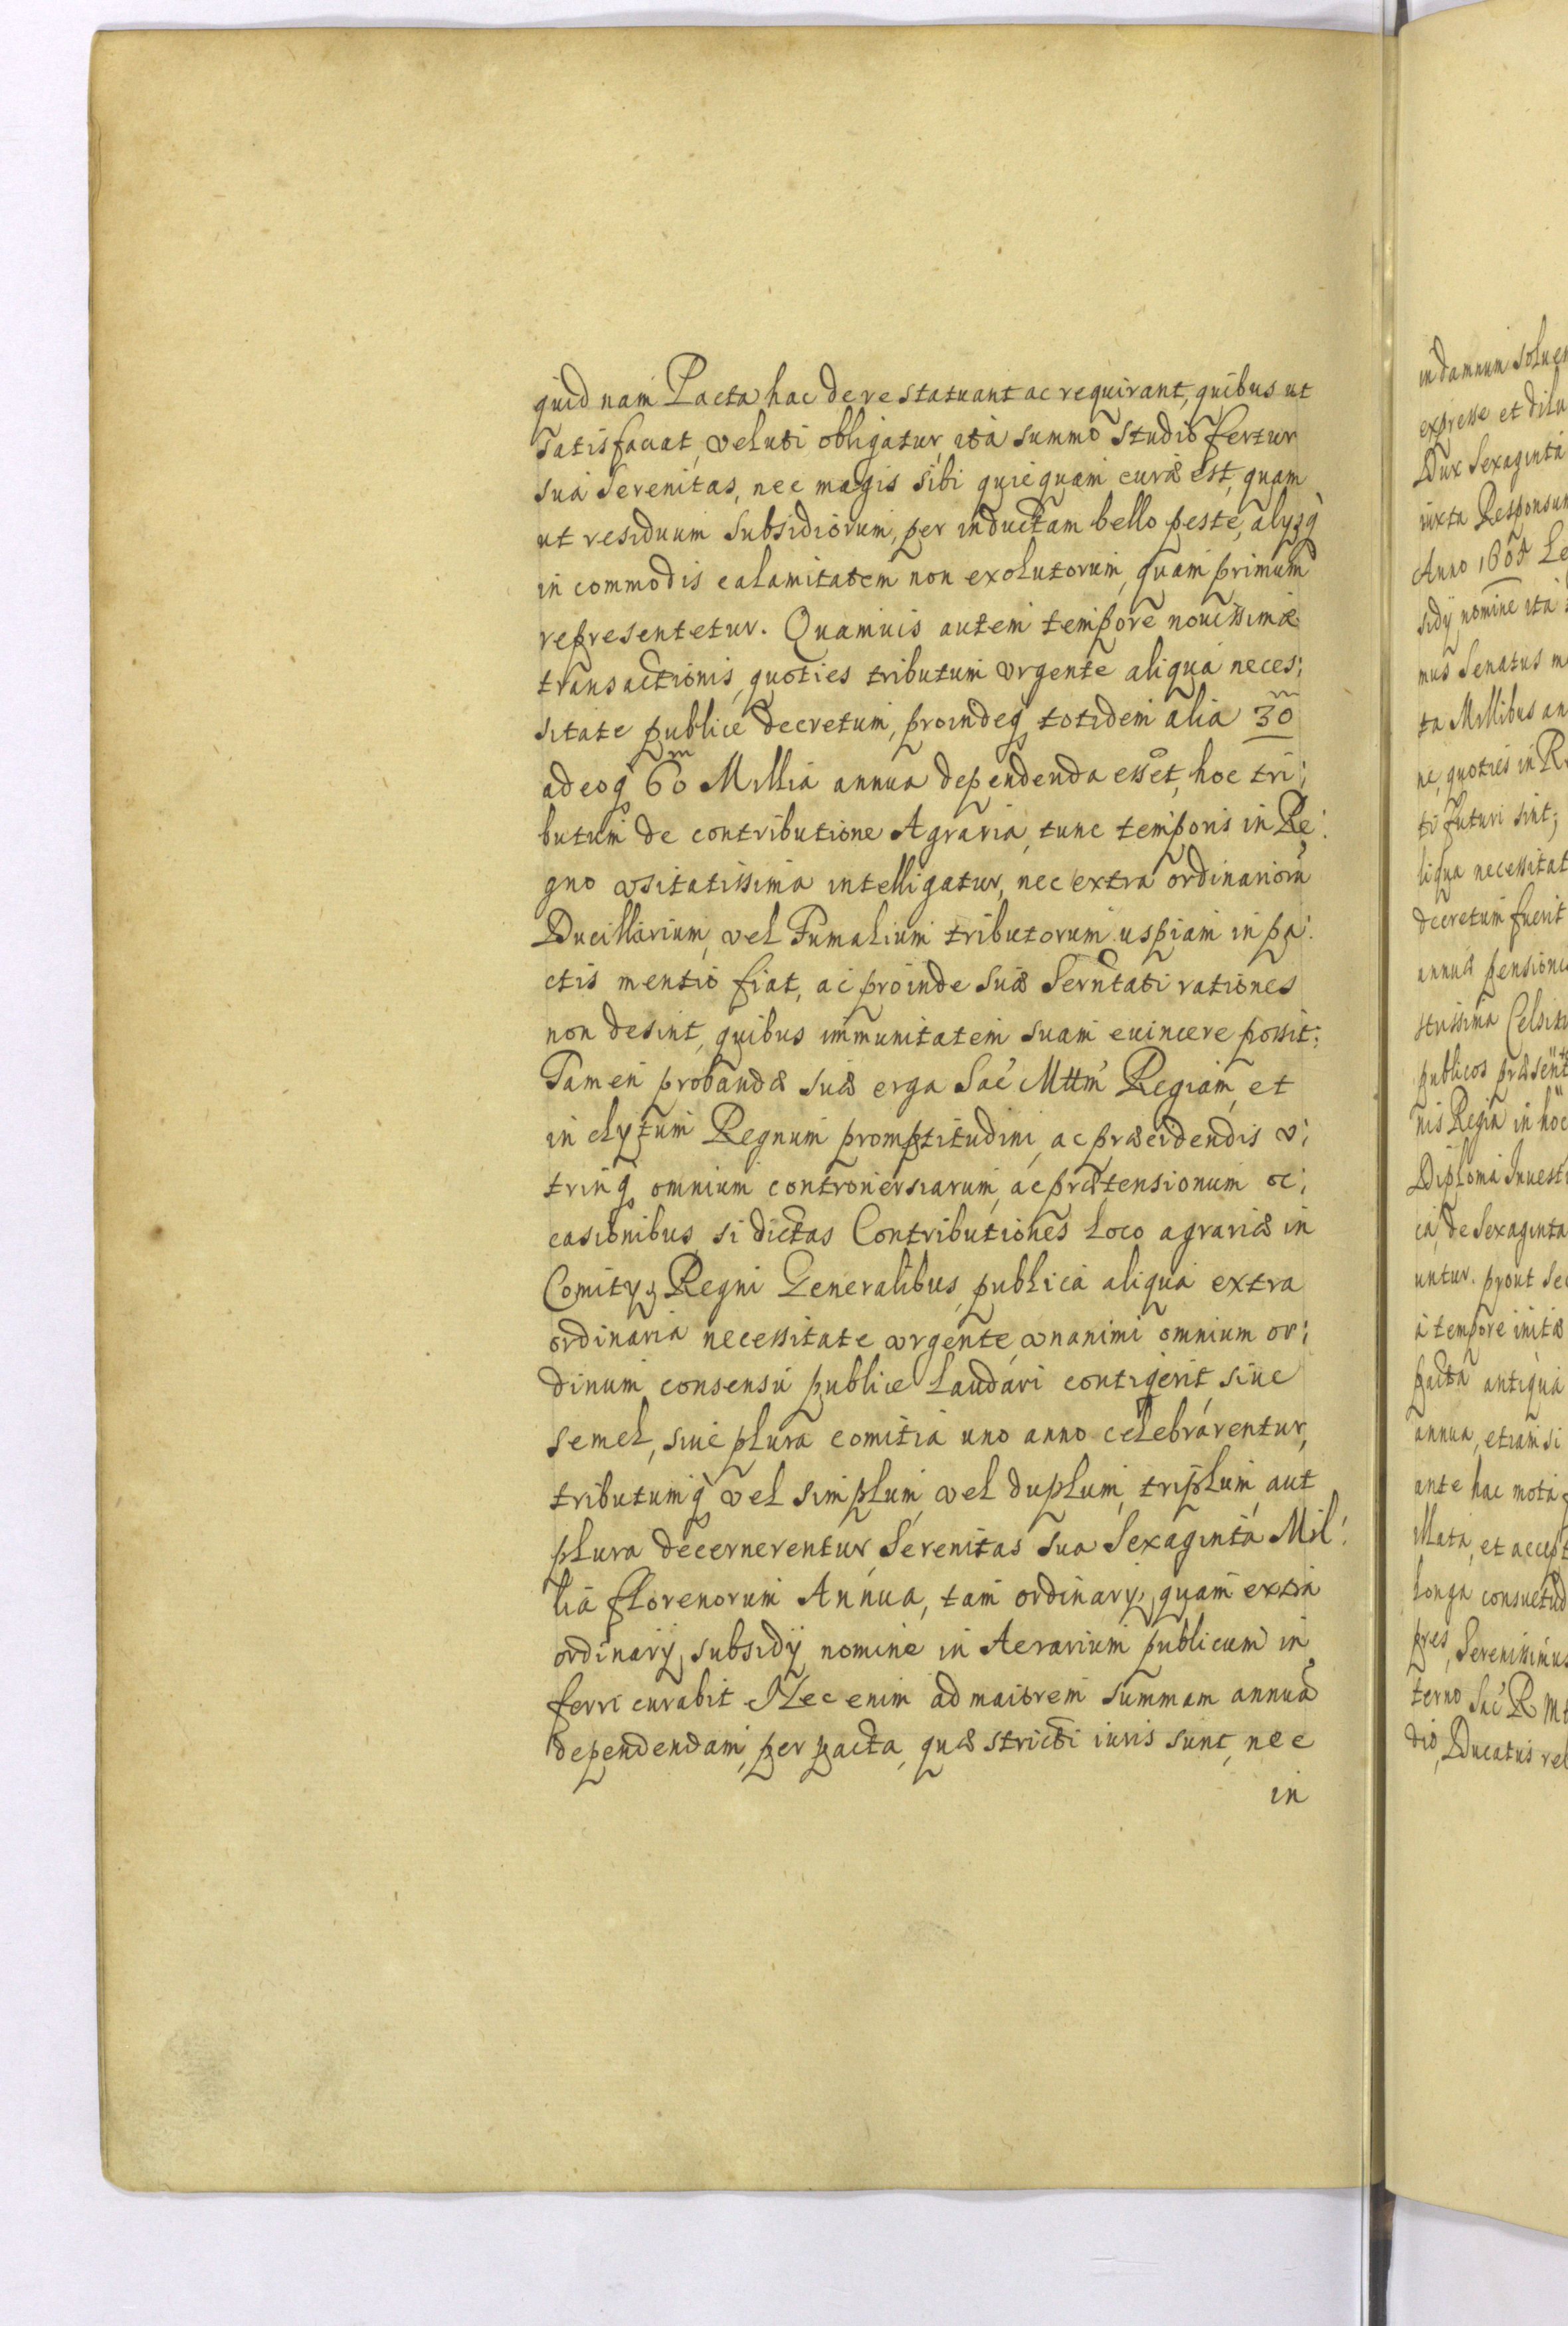 quid nam Pacta hac de re statuant ac requirant, quibus ut
satisfaciat, veluti obligatur, ità summo studio fertur
sua Serenitas, nec magis sibi quicquam curæ est, quam
ut residuum subsidiorum, per inductam bello peste, alysq̀
in commodis calamitatem non exolutorum, quam primum
representetur. Quamvis autem tempore novissimæ
transactionis, quoties tributum vrgente aliquá neces:
sitate publicè decretum, proindeq totidem alia 30m
adeoq 60m Millia annua dependenda esset, hoc tri:
butum de contributione Agraria, tunc temporis in Re:
gno vsitatissima intelligatur, nec extra ordinariorū
Ducillarium, vel Fumalium tributorum uspiam in pa:
ctis mentio fiat, ac proinde suæ Serntati rationes
non desint, quibus immunitatem suam evincere possit:
Tamen probandæ suæ erga Sac̀ Mttm̀ Regiam, et
inclytum Regnum promptitudini, ac præcidendis v:
trinq omnium controversiarum, ac prætensionum oc:
casionibus, si dictas Contributiones loco agrariæ in
Comitys Regni Generalibus, publicà aliquà extra
ordinaria necessitate vrgente, vnanimi omnium or:
dinum consensu publice laudári contigerit, sive
semel, sive plura comitia uno anno celebrárentur,
tributumq̀ vel simplum, vel duplum, triplum, aut
plura decernerentur, Serenitas sua Sexagintá Mil:
lia florenorum Annua, tam ordinary, quam extra
ordinarÿ, subsidÿ nomine in Aerarium publicum in
ferri curabit. Nec enim ad maiorem summam annuā
dependendam, per pacta, quæ stricti iuris sunt, nec
in
in damnum
expresse et
Dux Sexaginta
iuxta
Anno
sidÿ nomine ita
mus Senatus
ta Millibus
ne, quoties in
ti futuri sint;
liqua
decretum fuerit
annuæ
publicos
nis Regia in
Diploma
de Sexaginta
untur. prout
à tempore initæ
pacta antiqua
annua, etiam si
ante hac mota
et
longa
terno Sac̀ R
Ducatus